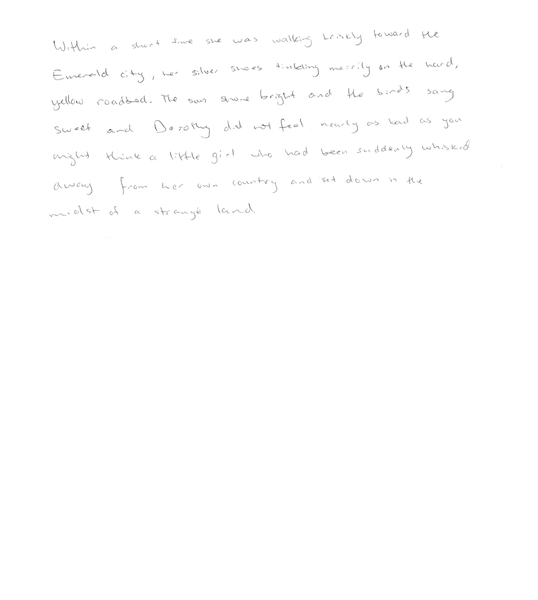 Within a short time she was walking briskly toward the
Emerald city, her silver shoes tinkling merrily on the hard,
yellow roadbed. The sun shone bright and the birds sang
sweet and Dorothy did not feel nearly as bad as you
might think a little girl who had been suddenly whisked
away from her own country and set down in the
midst of a strange land